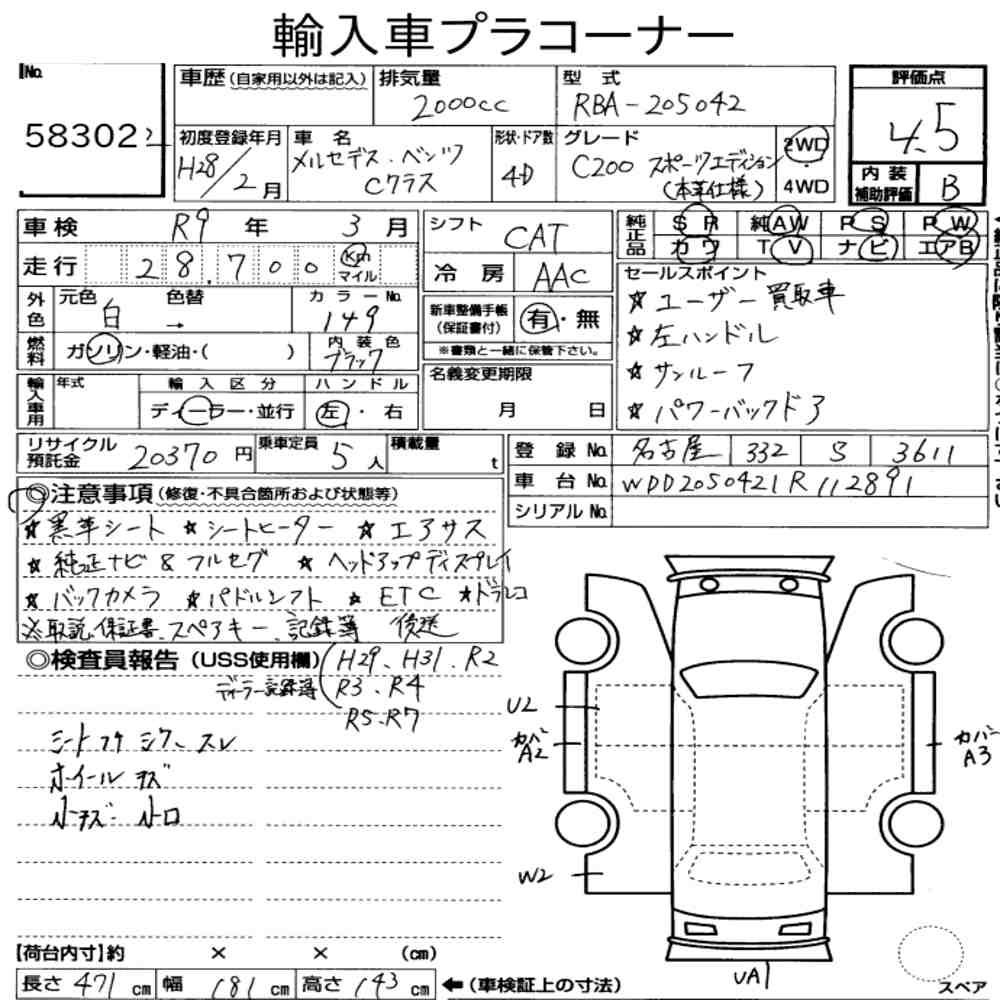 輸入車プラコーナー
No.
58302
車歴（自家用以外は記入） 排気量 2000cc 型式 RBA-205042
初度登録年月 H28/2月 車名 メルセデス・ベンツ Cクラス 形状・ドア数 4D グレード C200 スポーツエディション（本革仕様） 2WD・4WD
評価点 4.5
内装補助評価 B
車検 R9年 3月
走行 28,700 Km マイル
外色 元色 白 色替 → カラーNo. 149
燃料 ガソリン・軽油・( ) 内装色 ブラック
輸入車用 年式 輸入区分 ディーラー・並行 ハンドル 左・右
シフト CAT
冷房 AAC
新車整備手帳（保証書付） 有・無
※書類と一緒に保管下さい。
名義変更期限 月 日
純正品 SR 純AW PS PW
カワ TV ナビ エアB
セールスポイント
☆ユーザー買取車
☆左ハンドル
☆サンルーフ
☆パワーバックドア
リサイクル預託金 20370円 乗車定員 5人 積載量 t
登録No. 名古屋 332 S 3611
車台No. WDD2050421R112891
シリアルNo.
◎注意事項（修復・不具合箇所および状態等）
☆黒革シート ☆シートヒーター ☆エアサス
☆純正ナビ&フルセグ ☆ヘッドアップディスプレイ
☆バックカメラ ☆パドルシフト ☆ETC ☆ドラレコ
※取説、保証書、スペアキー、記録簿 後送
◎検査員報告（USS使用欄） H29、H31、R2
ディーラー記録簿 R3、R4
R5、R7
シート シワ、スレ
ホイール キズ
小キズ 小凹
U2
カバーA2
カバーA3
W2
UA1
スペア
【荷台内寸】約 × × （cm）
長さ 471cm 幅 181cm 高さ 143cm ←（車検証上の寸法）